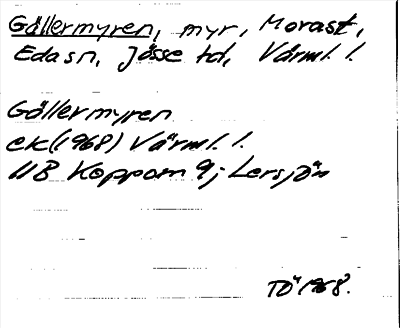 Gällermyren, myr, Morast,
Eda sn, Jösse hd, Värml. l.
Gällermyren
ek(1968) Värml. l.
11B Koppom 9j Lersjön
TÖ 1968.